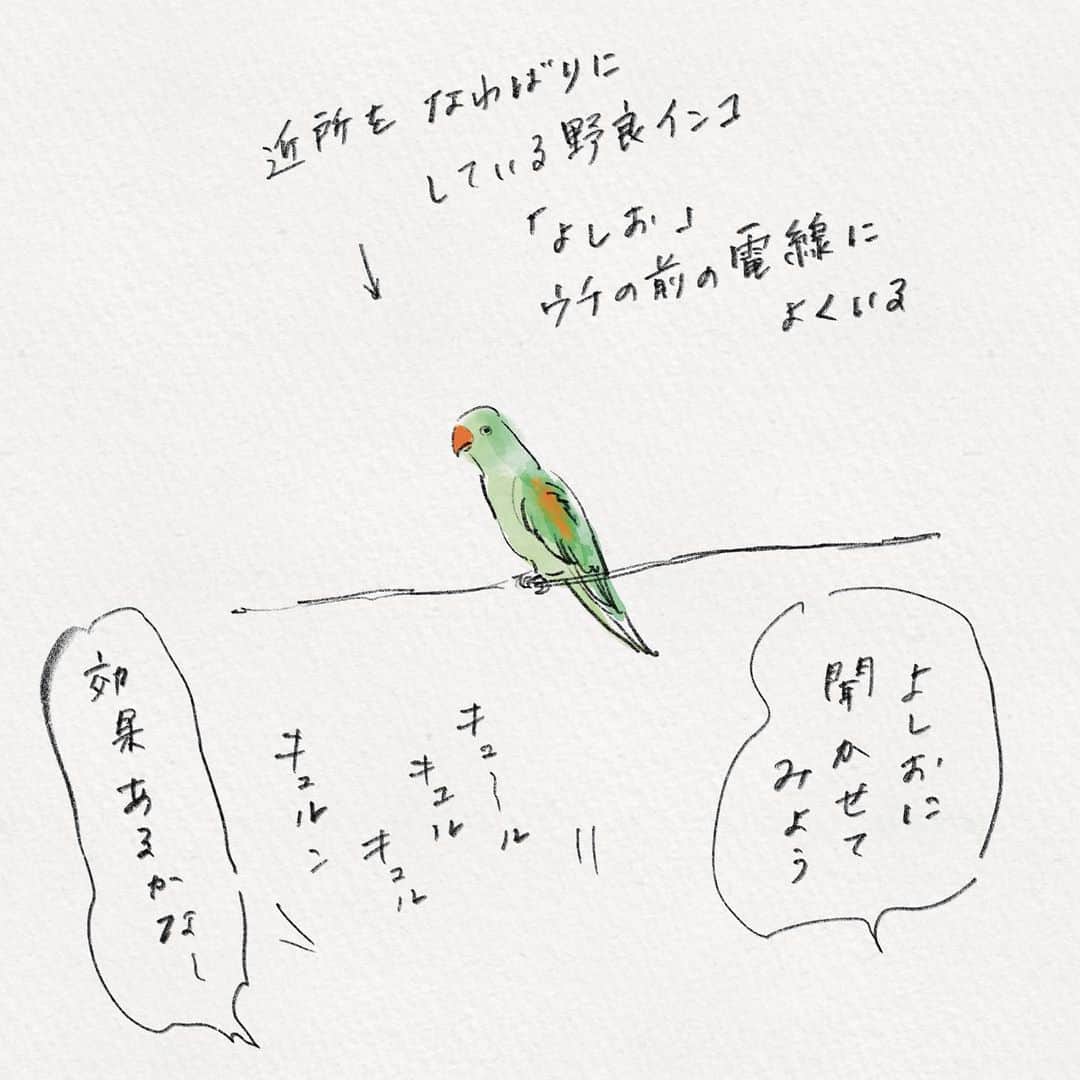 近所をなわばりに
している野良インコ
「よしお」
ウチの前の電線に
よくいる
よしおに
聞かせて
みよう
キュール
キュル
キュル
キュルン
効果あるかなー